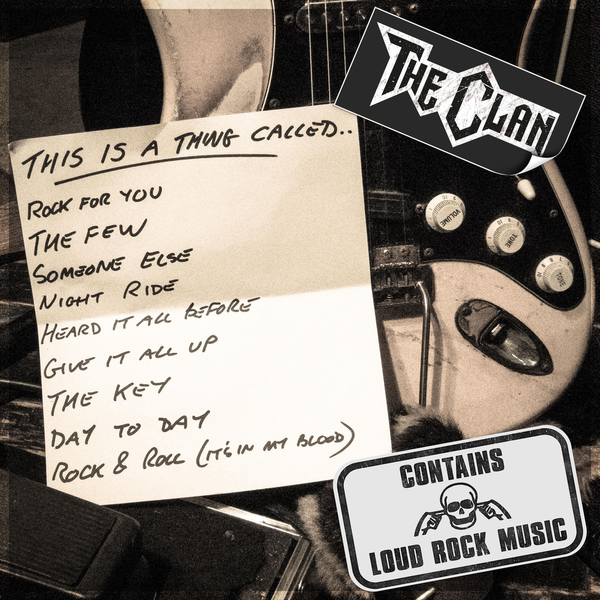 THE CLAN
THIS IS A THING CALLED..
ROCK FOR YOU
THE FEW
SOMEONE ELSE
NIGHT RIDE
HEARD IT ALL BEFORE
GIVE IT ALL UP
THE KEY
DAY TO DAY
ROCK & ROLL (IT'S IN MY BLOOD)
VOLUME
TONE
TONE
CONTAINS
LOUD ROCK MUSIC